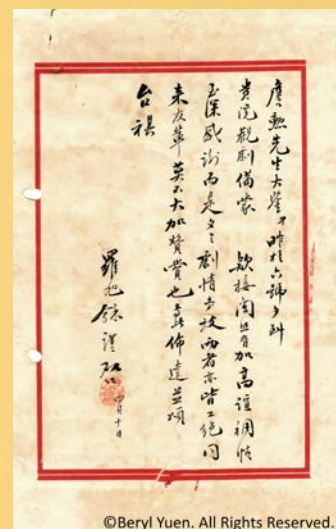 廣勳先生大鑒昨於六號夕到
貴院觀劇備蒙 款接關照有加高誼稠情
至深感謝而是夕之劇情與技兩者亦皆工絕同
來友輩莫不大加贊賞也耑佈達並頌
台祺
羅旭龢謹啟
四月十日
©Beryl Yuen. All Rights Reserved